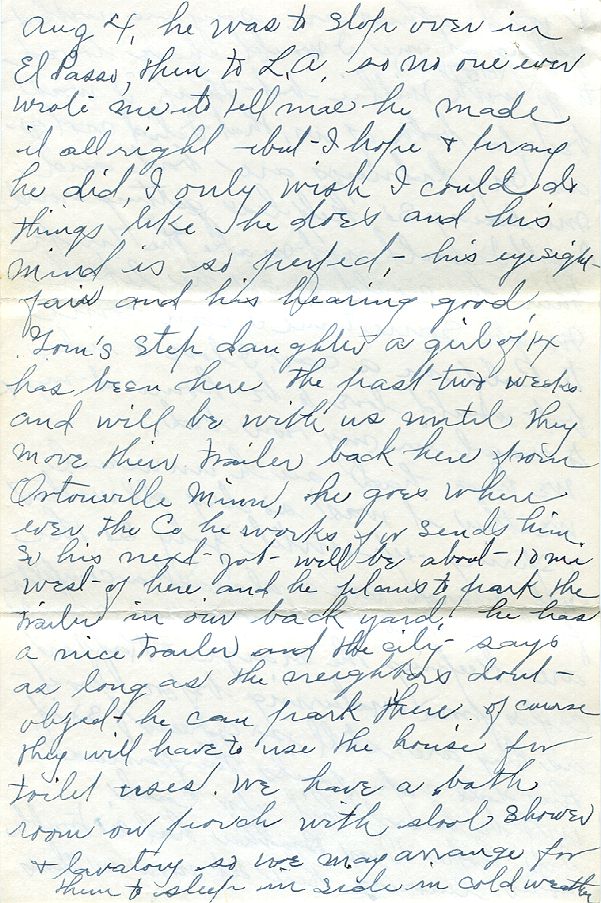 Aug 4, he was to stop over in
El Passo, then to L.A. so no one ever
wrote me to tell me he made
it allright but I hope & pray
he did, I only wish I could do
things like he does and his
mind is so perfect, his eyesight
fair and his hearing good,
Tom's step daughter a girl of 14
has been here the past two weeks
and will be with us until they
move their trailer back here from
Ortonville Minn, he goes where
ever the Co he works for sends him.
So his next job will be about 10 mi
west of here and he plans to park the
trailer in our back yard, he has
a nice trailer and the city says
as long as the neighbors dont
object he can park there of course
they will have to use the house for
toilet uses. We have a bath
room on porch with stool shower
& lavatory so we may arrange for
them to sleep in side in cold weather